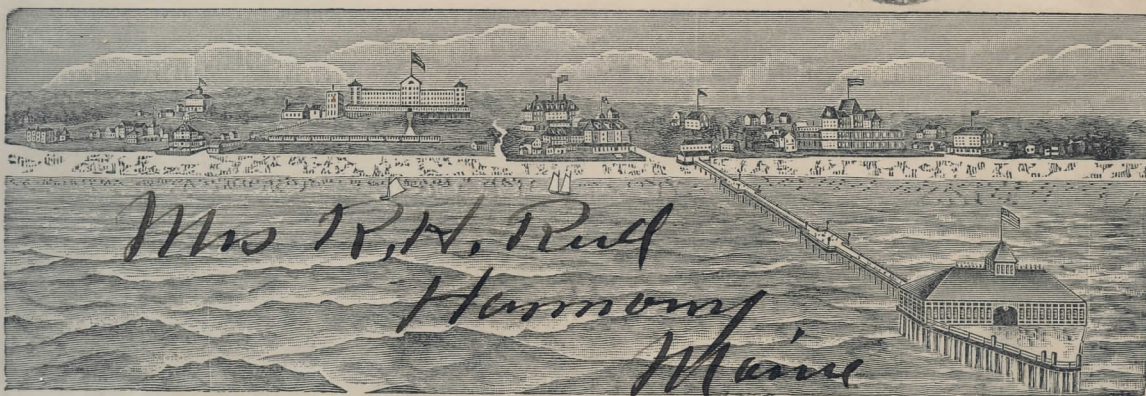 Mrs R. H.
Harmony
Maine